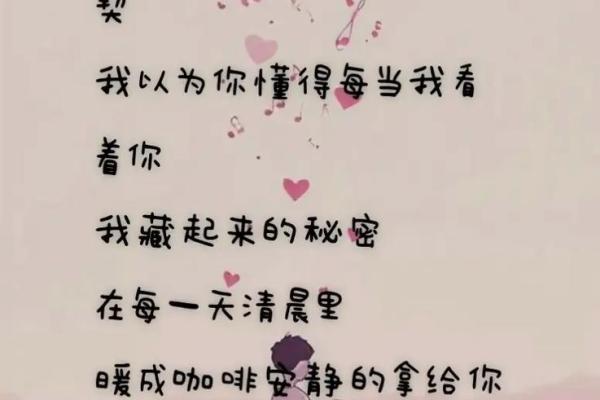 契
我以为你懂得每当我看
着你
我藏起来的秘密
在每一天清晨里
暖成咖啡安静的拿给你